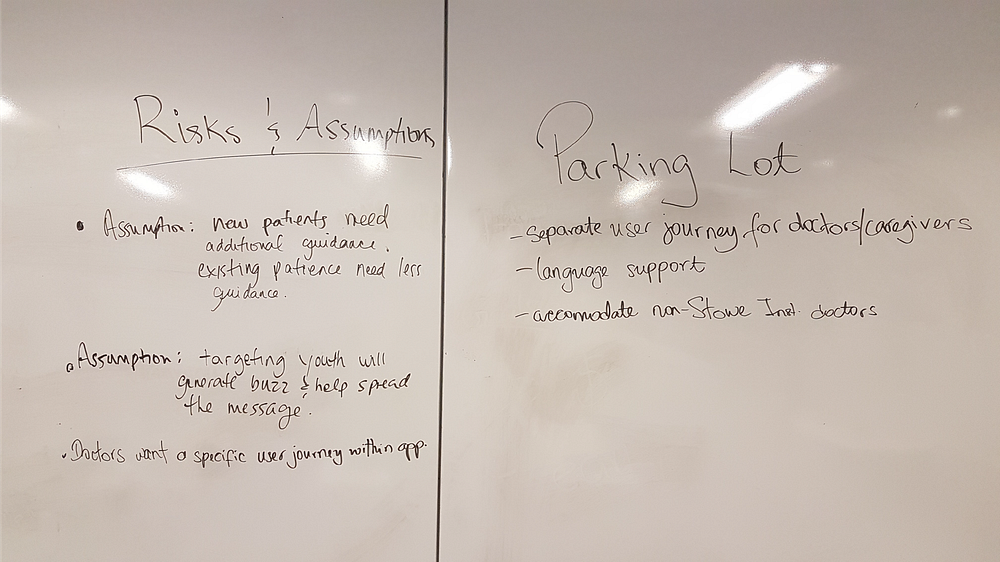 Risks & Assumptions
• Assumption: new patients need
additional guidance.
existing patience need less
guidance.
• Assumption: targeting youth will
generate buzz & help spread
the message.
• Doctors want a specific user journey within app.
Parking Lot
- separate user journey for doctors/caregivers
- language support
- accomodate non-Stowe Inst. doctors